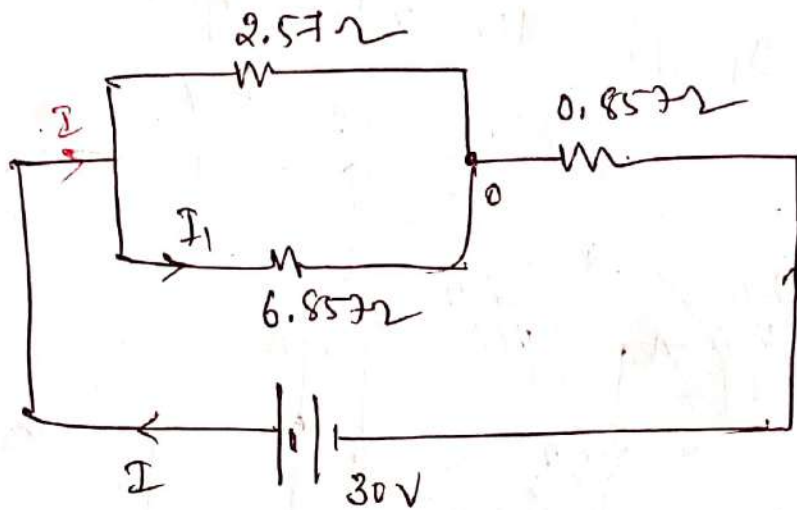 2.57Ω
0.857Ω
I
I₁
0
6.857Ω
I
30V